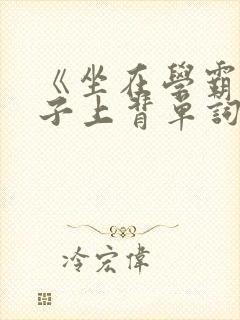 《坐在學霸
子上背單詞
冷宏偉